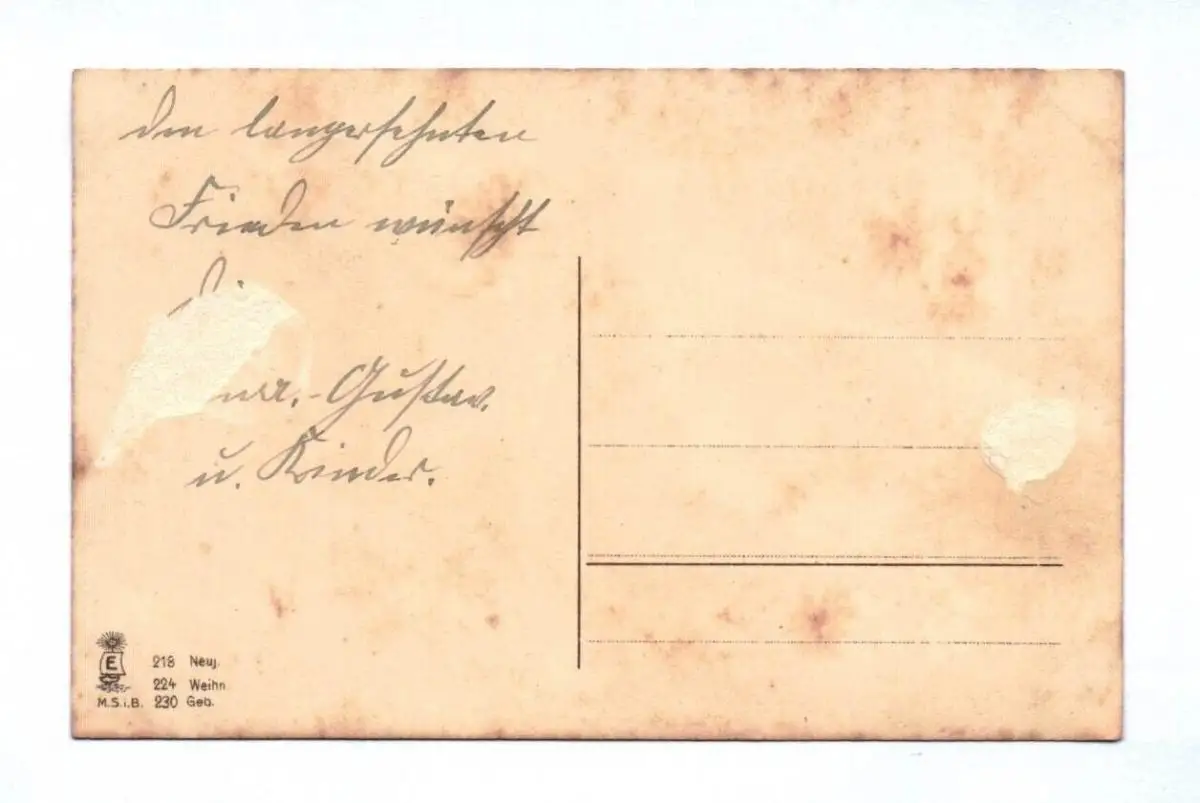 den langersehnten
Frieden wünscht
Gustav.
u. Kinder.
E
218 Neuj.
224 Weihn
M.S.i.B. 230 Geb.